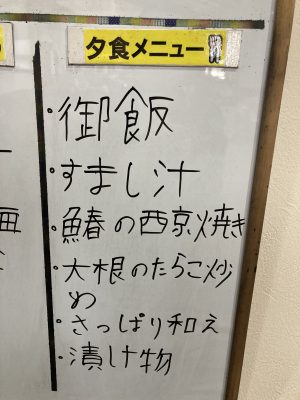 夕食メニュー
・御飯
・すまし汁
・鰆の西京焼き
・大根のたらこ炒
め
・さっぱり和え
・漬け物